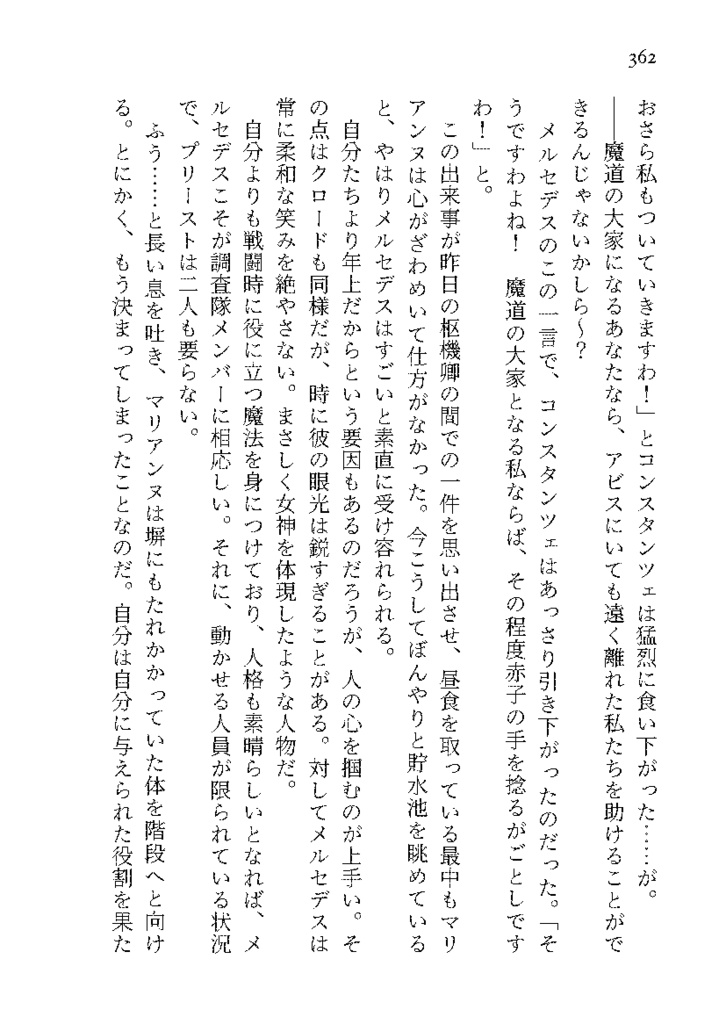 362
おさら私もついていきますわ！」とコンスタンツェは猛烈に食い下がった……が。
――魔道の大家になるあなたなら、アビスにいても遠く離れた私たちを助けることがで
きるんじゃないかしら～？
メルセデスのこの一言で、コンスタンツェはあっさり引き下がったのだった。「そ
うですわよね！　魔道の大家となる私ならば、その程度赤子の手を捻るがごとしです
わ！」と。
この出来事が昨日の枢機卿の間での一件を思い出させ、昼食を取っている最中もマリ
アンヌは心がざわめいて仕方がなかった。今こうしてぼんやりと貯水池を眺めている
と、やはりメルセデスはすごいと素直に受け容れられる。
自分たちより年上だからという要因もあるのだろうが、人の心を掴むのが上手い。そ
の点はクロードも同様だが、時に彼の眼光は鋭すぎることがある。対してメルセデスは
常に柔和な笑みを絶やさない。まさしく女神を体現したような人物だ。
自分よりも戦闘時に役に立つ魔法を身につけており、人格も素晴らしいとなれば、メ
ルセデスこそが調査隊メンバーに相応しい。それに、動かせる人員が限られている状況
で、プリーストは二人も要らない。
ふう……と長い息を吐き、マリアンヌは塀にもたれかかっていた体を階段へと向け
る。とにかく、もう決まってしまったことなのだ。自分は自分に与えられた役割を果た